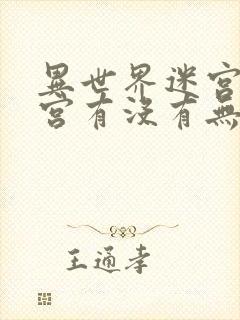 異世界迷宮
宮有沒有無
王通孝